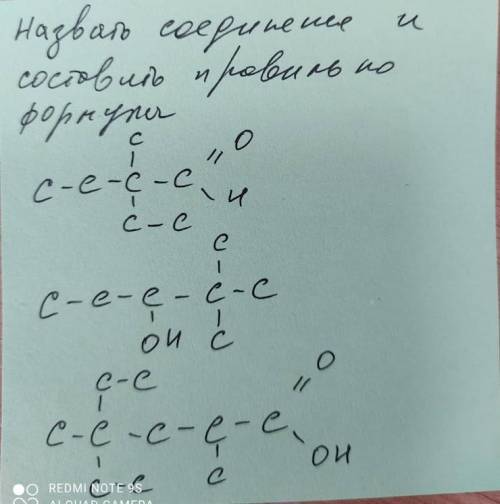 Назвать соединение и
составить правильно
формулы
C
C-C-C-C=O
H
C-C
C
C-C-C-C-C
OH C
C-C O
C-C-C-C-C
C OH
C-C
REDMI NOTE 9S
AI QUAD CAMERA